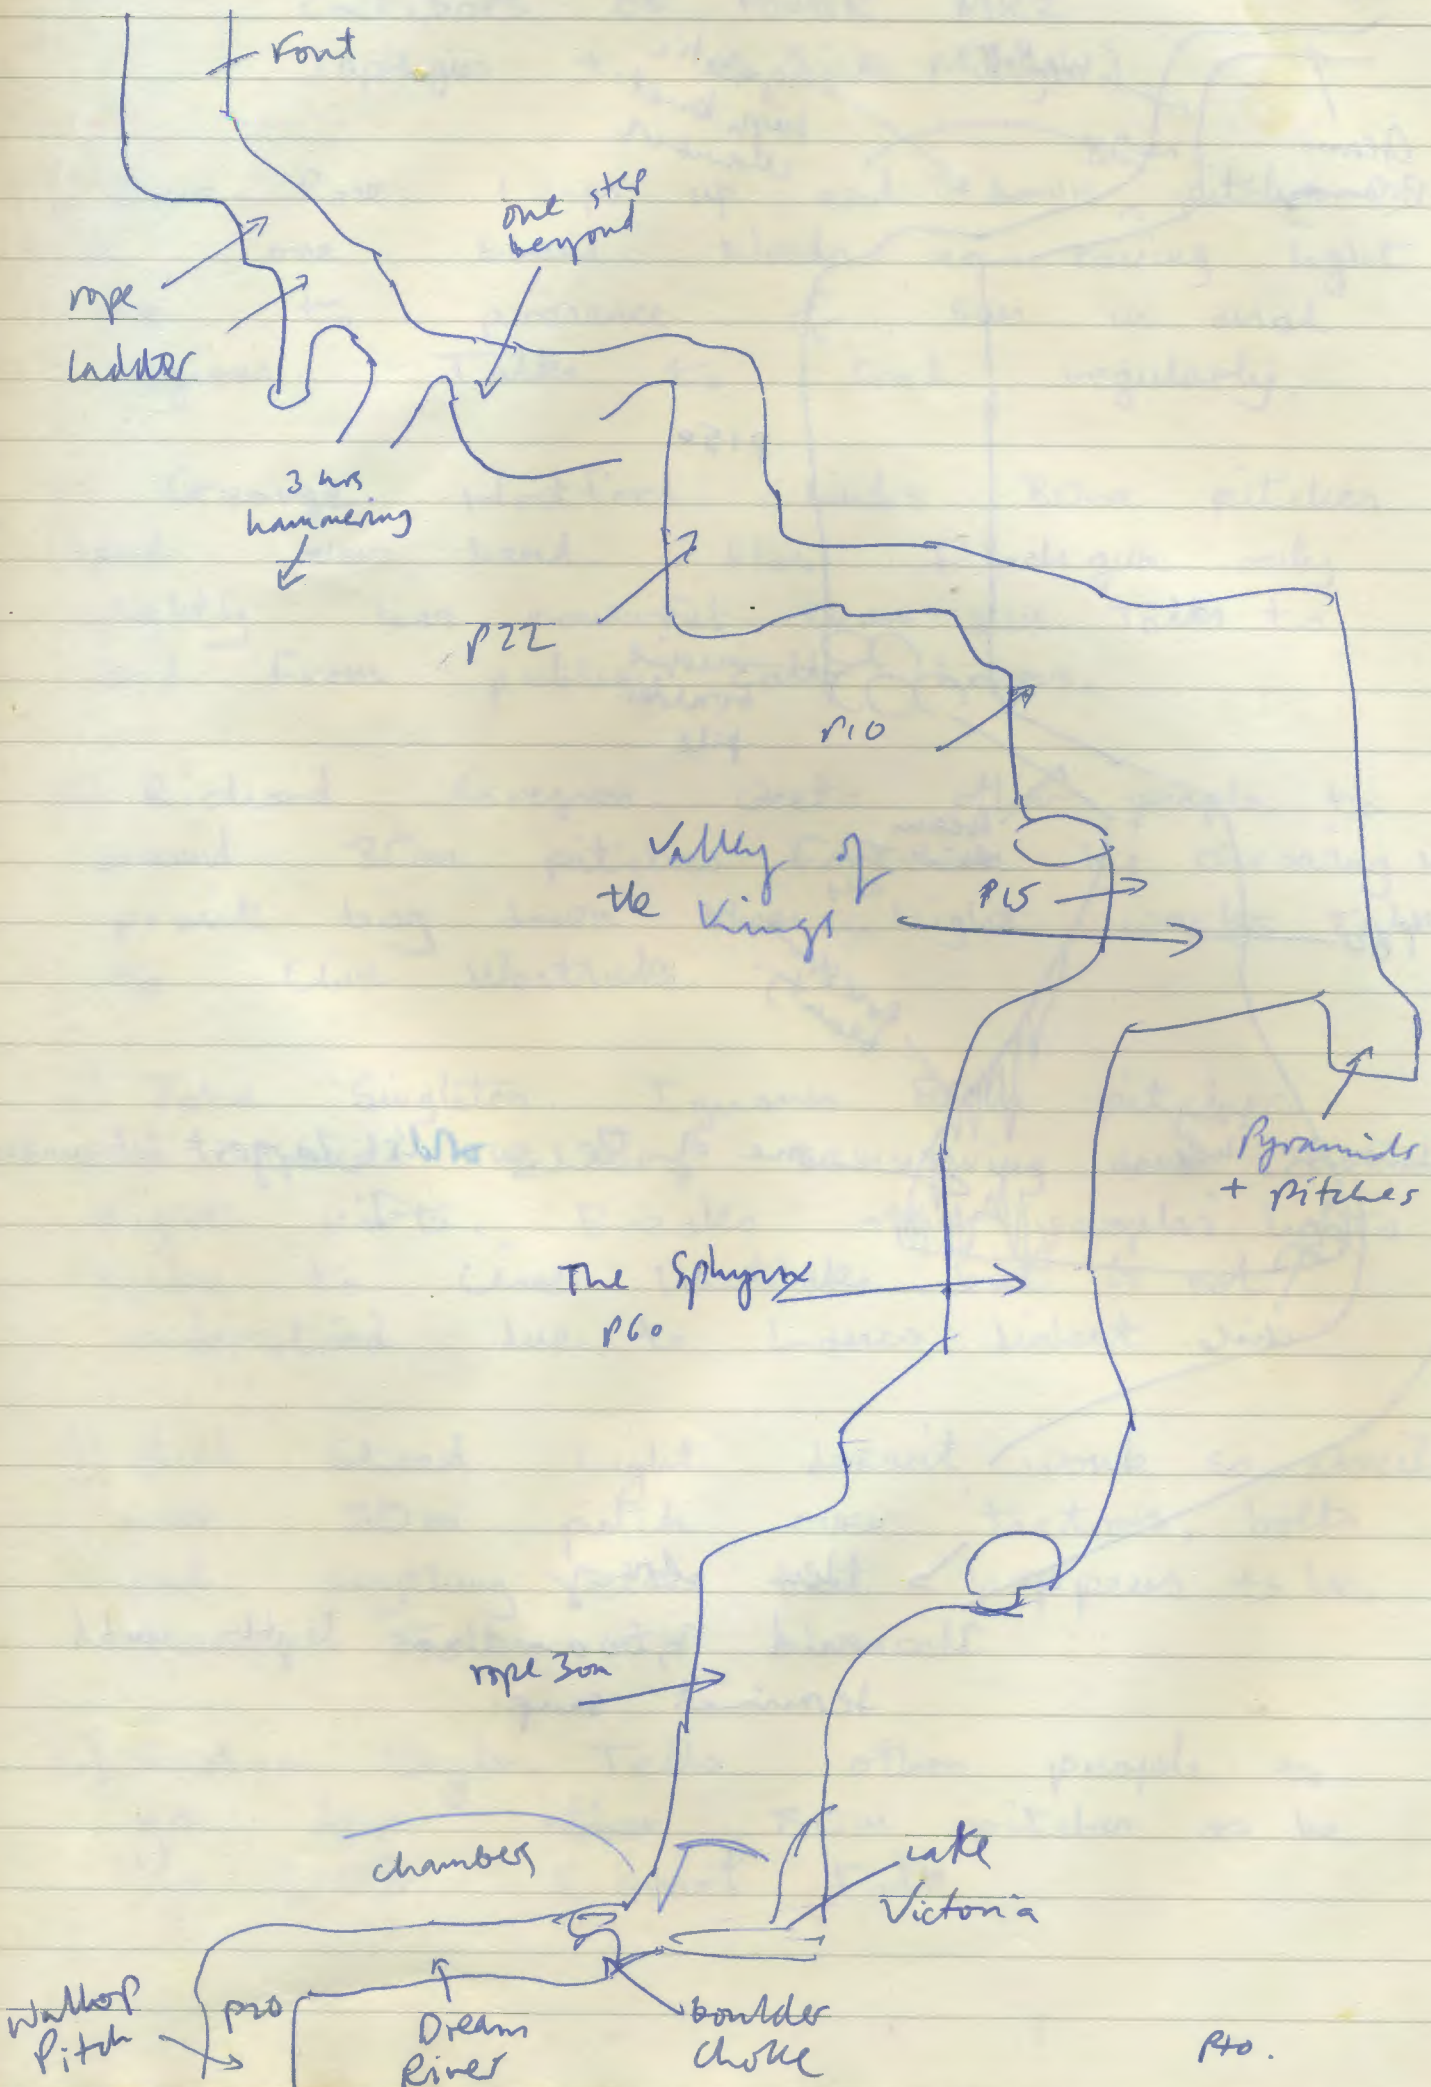 Font
one step
beyond
rope
ladder
3 hrs
hammering
P22
P10
Valley of
the Kings
P15
Pyramids
+ pitches
The Sphynx
P60
rope 30m
chambers
Lake
Victoria
Wallop
Pitch
P20
Dream
River
boulder
choke
PTO.